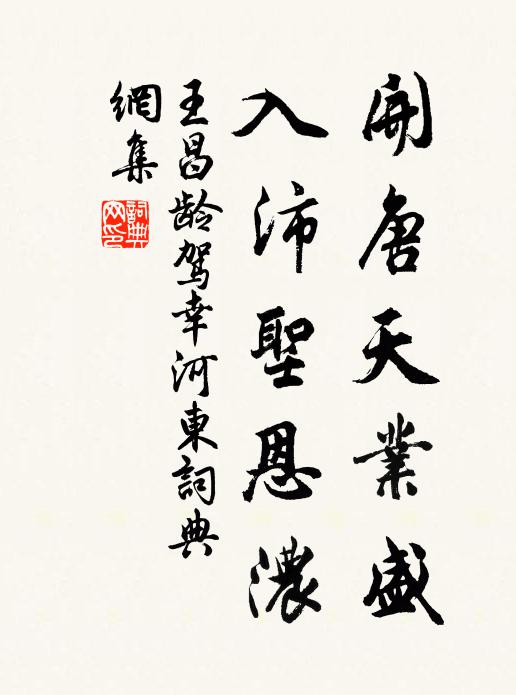 開唐天業盛
入沛聖恩濃
王昌齡駕幸河東詞典
網集
詞典
网印